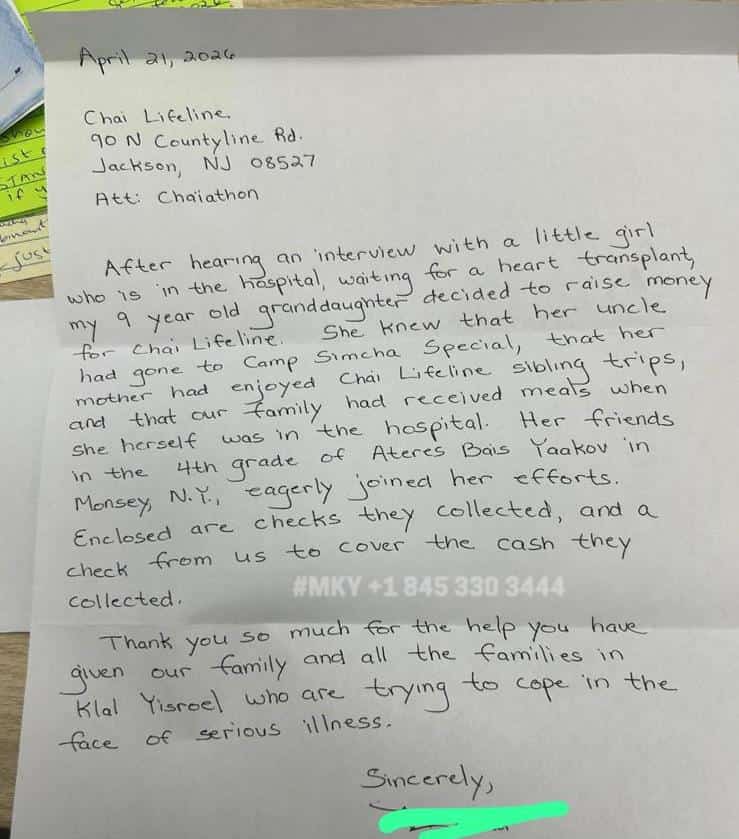 April 21, 2026
Chai Lifeline
90 N Countyline Rd.
Jackson, NJ 08527
Att: Chaiathon
After hearing an interview with a little girl
who is in the hospital, waiting for a heart transplant,
my 9 year old granddaughter decided to raise money
for Chai Lifeline. She knew that her uncle
had gone to Camp Simcha Special, that her
mother had enjoyed Chai Lifeline sibling trips,
and that our family had received meals when
she herself was in the hospital. Her friends
in the 4th grade of Ateres Bais Yaakov in
Monsey, N.Y., eagerly joined her efforts.
Enclosed are checks they collected, and a
check from us to cover the cash they
collected.
#MKY +1 845 330 3444
Thank you so much for the help you have
given our family and all the families in
Klal Yisroel who are trying to cope in the
face of serious illness.
Sincerely,